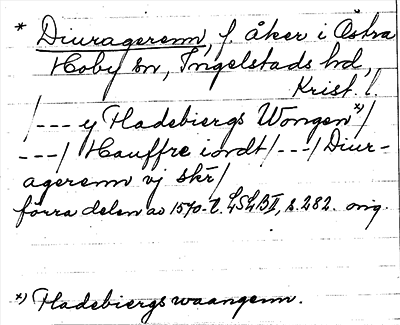 * Diuragerenn, f. åker i Östra
Hoby sn, Ingelstads hd,
Krist. l.
/--- y Fladebiergs Wongen *)/
---/ Hauffre iordt/---/Diur-
agerenn vj skr/
förra delen av 1570-t. LSLBII, s. 282. orig.
*) Fladebiergs waangenn.